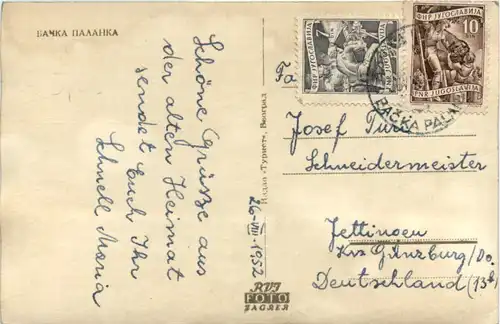 БАЧКА ПАЛАНКА
Schöne Grüsse aus
der alten Heimat
sendet Euch Ihr
Schnell Maria
26-VIII-1952
Издао „Турист“, Београд
RVI
FOTO
ZAGREB
7
ФНР ЈУГОСЛАВИЈА
FNR JUGOSLAVIJA
ФНР ЈУГОСЛАВИЈА
10
FNR JUGOSLAVIJA
BAČKA PALA
Fa
Josef
Schneidermeister
Jettingen
Krs Günzburg/Do.
Deutschland